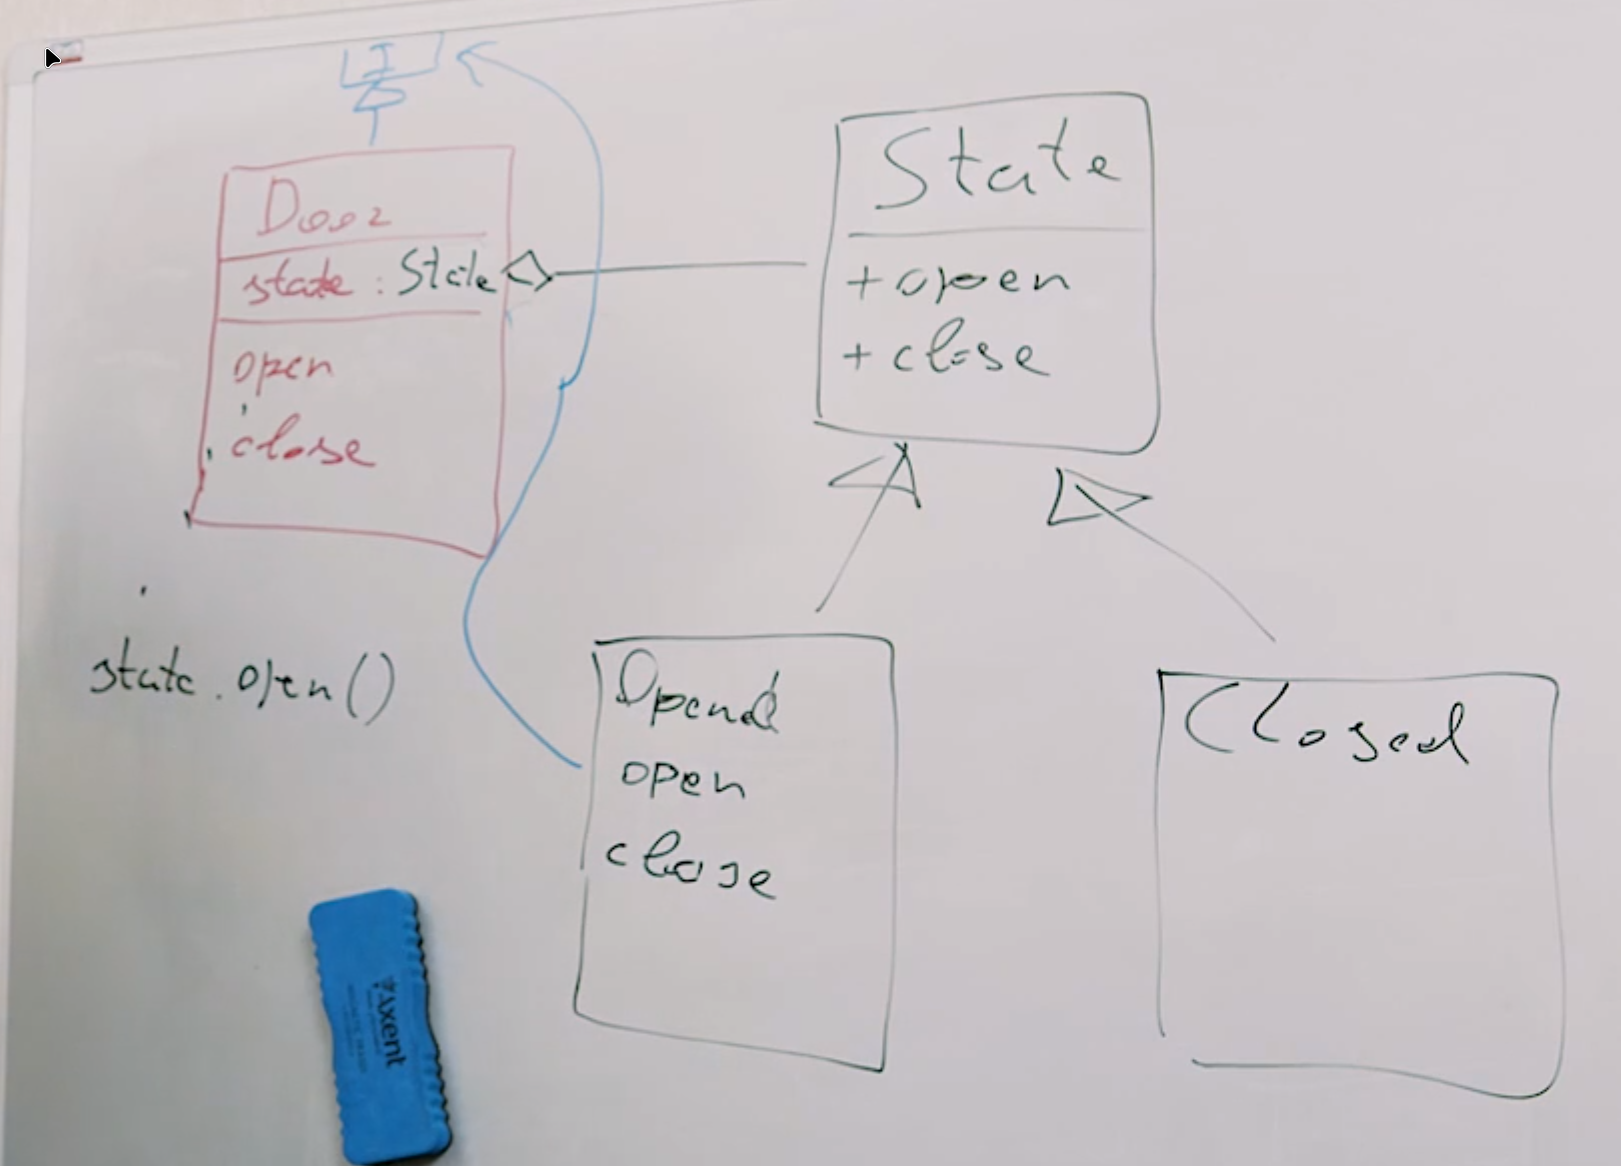 I
Door
state : State
open
close
state.open()
State
+open
+close
Opened
open
close
Closed
Axent